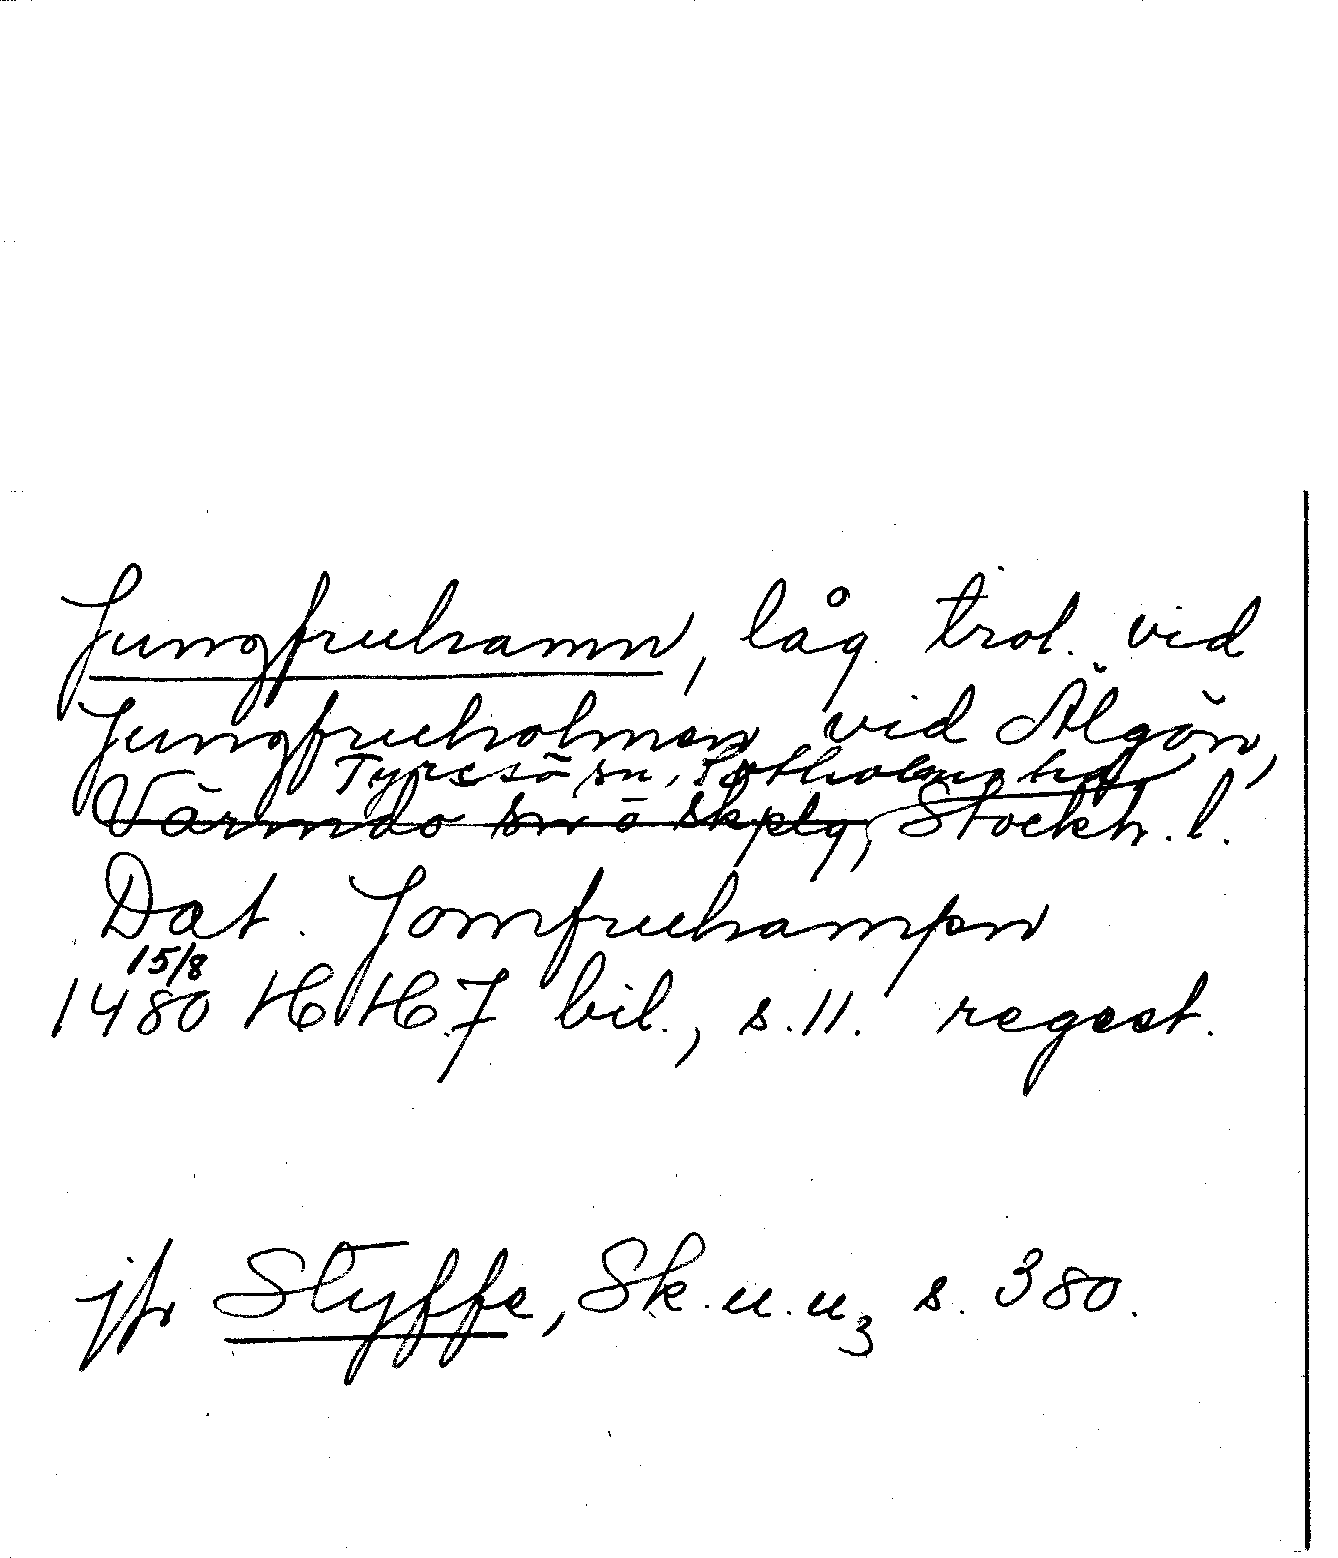 Jungfruhamn, låg trol. vid
Jungfruholmen vid Älgön,
Tyresö sn, Sotholms hd
Värmdö sn o skplg, Stockh. l.
Dat. Jomfruhampn
15/8
1480 HH 7 bil., s. 11. regest.
jfr Styffe, Sk. u. u3 s. 380.